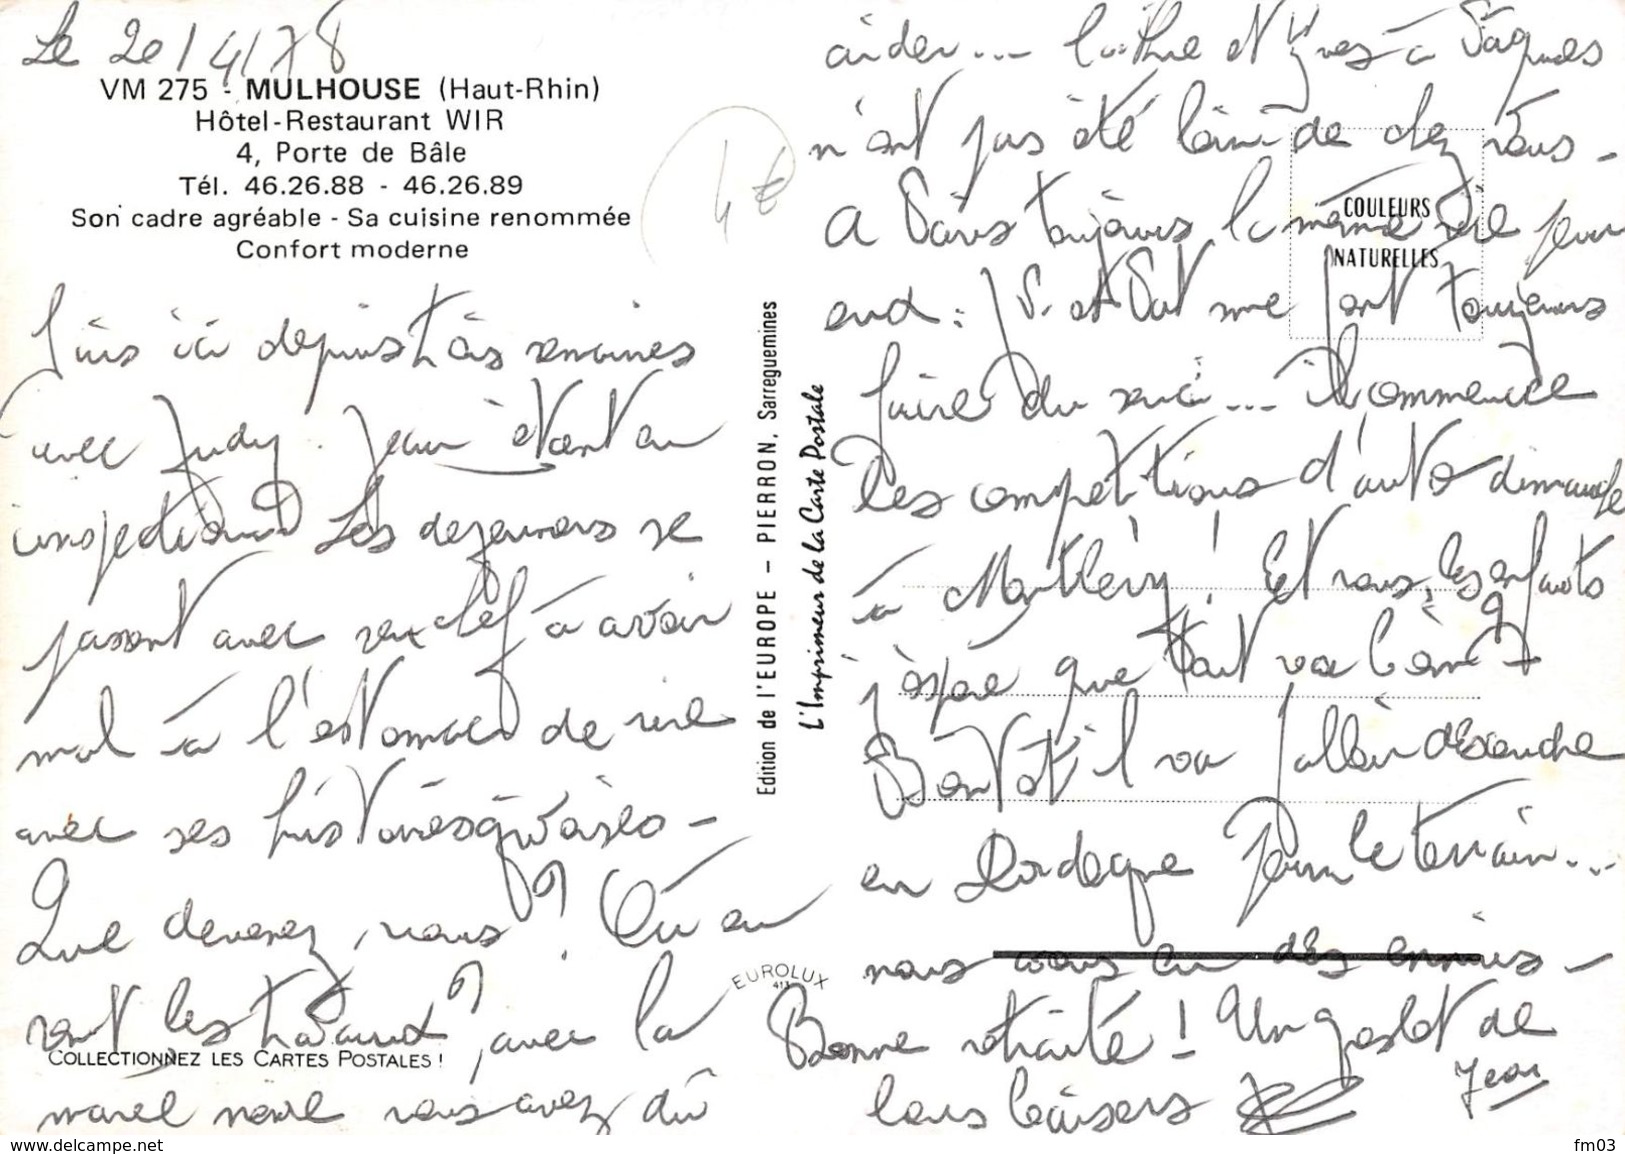 Le 20/4/78
VM 275 - MULHOUSE (Haut-Rhin)
Hôtel-Restaurant WIR
4, Porte de Bâle
Tél. 46.26.88 - 46.26.89
Son cadre agréable - Sa cuisine renommée
Confort moderne
4€
Suis ici depuis trois semaines
avec Judy. Jean étant en
inspection. Les dejeuners se
passent avec son chef à avoir
mal à l'estomac de rire
avec ses histoires
Que devenez, vous? Où en
sont les travaux? avec la
COLLECTIONNEZ LES CARTES POSTALES !
marel noire vous avez dû
Edition de l'EUROPE - PIERRON, Sarreguemines
L'Imprimeur de la Carte Postale
EUROLUX
413
COULEURS
NATURELLES
aider... et Yves à Pâques
n'ont pas été loin de chez vous -
A Paris toujours la même vie pour
eux: P. et Pat me font toujours
faire du souci... il commence
les compétitions d'auto dimanche
à Montlhéry! Et vous, les enfants
j'espère que tout va bien?
Bientôt il va falloir descendre
en Dordogne pour le terrain...
nous avons eu des ennuis -
Bonne retraite! Un gros lot de
bons baisers
Jean
delcampe.net
fm03